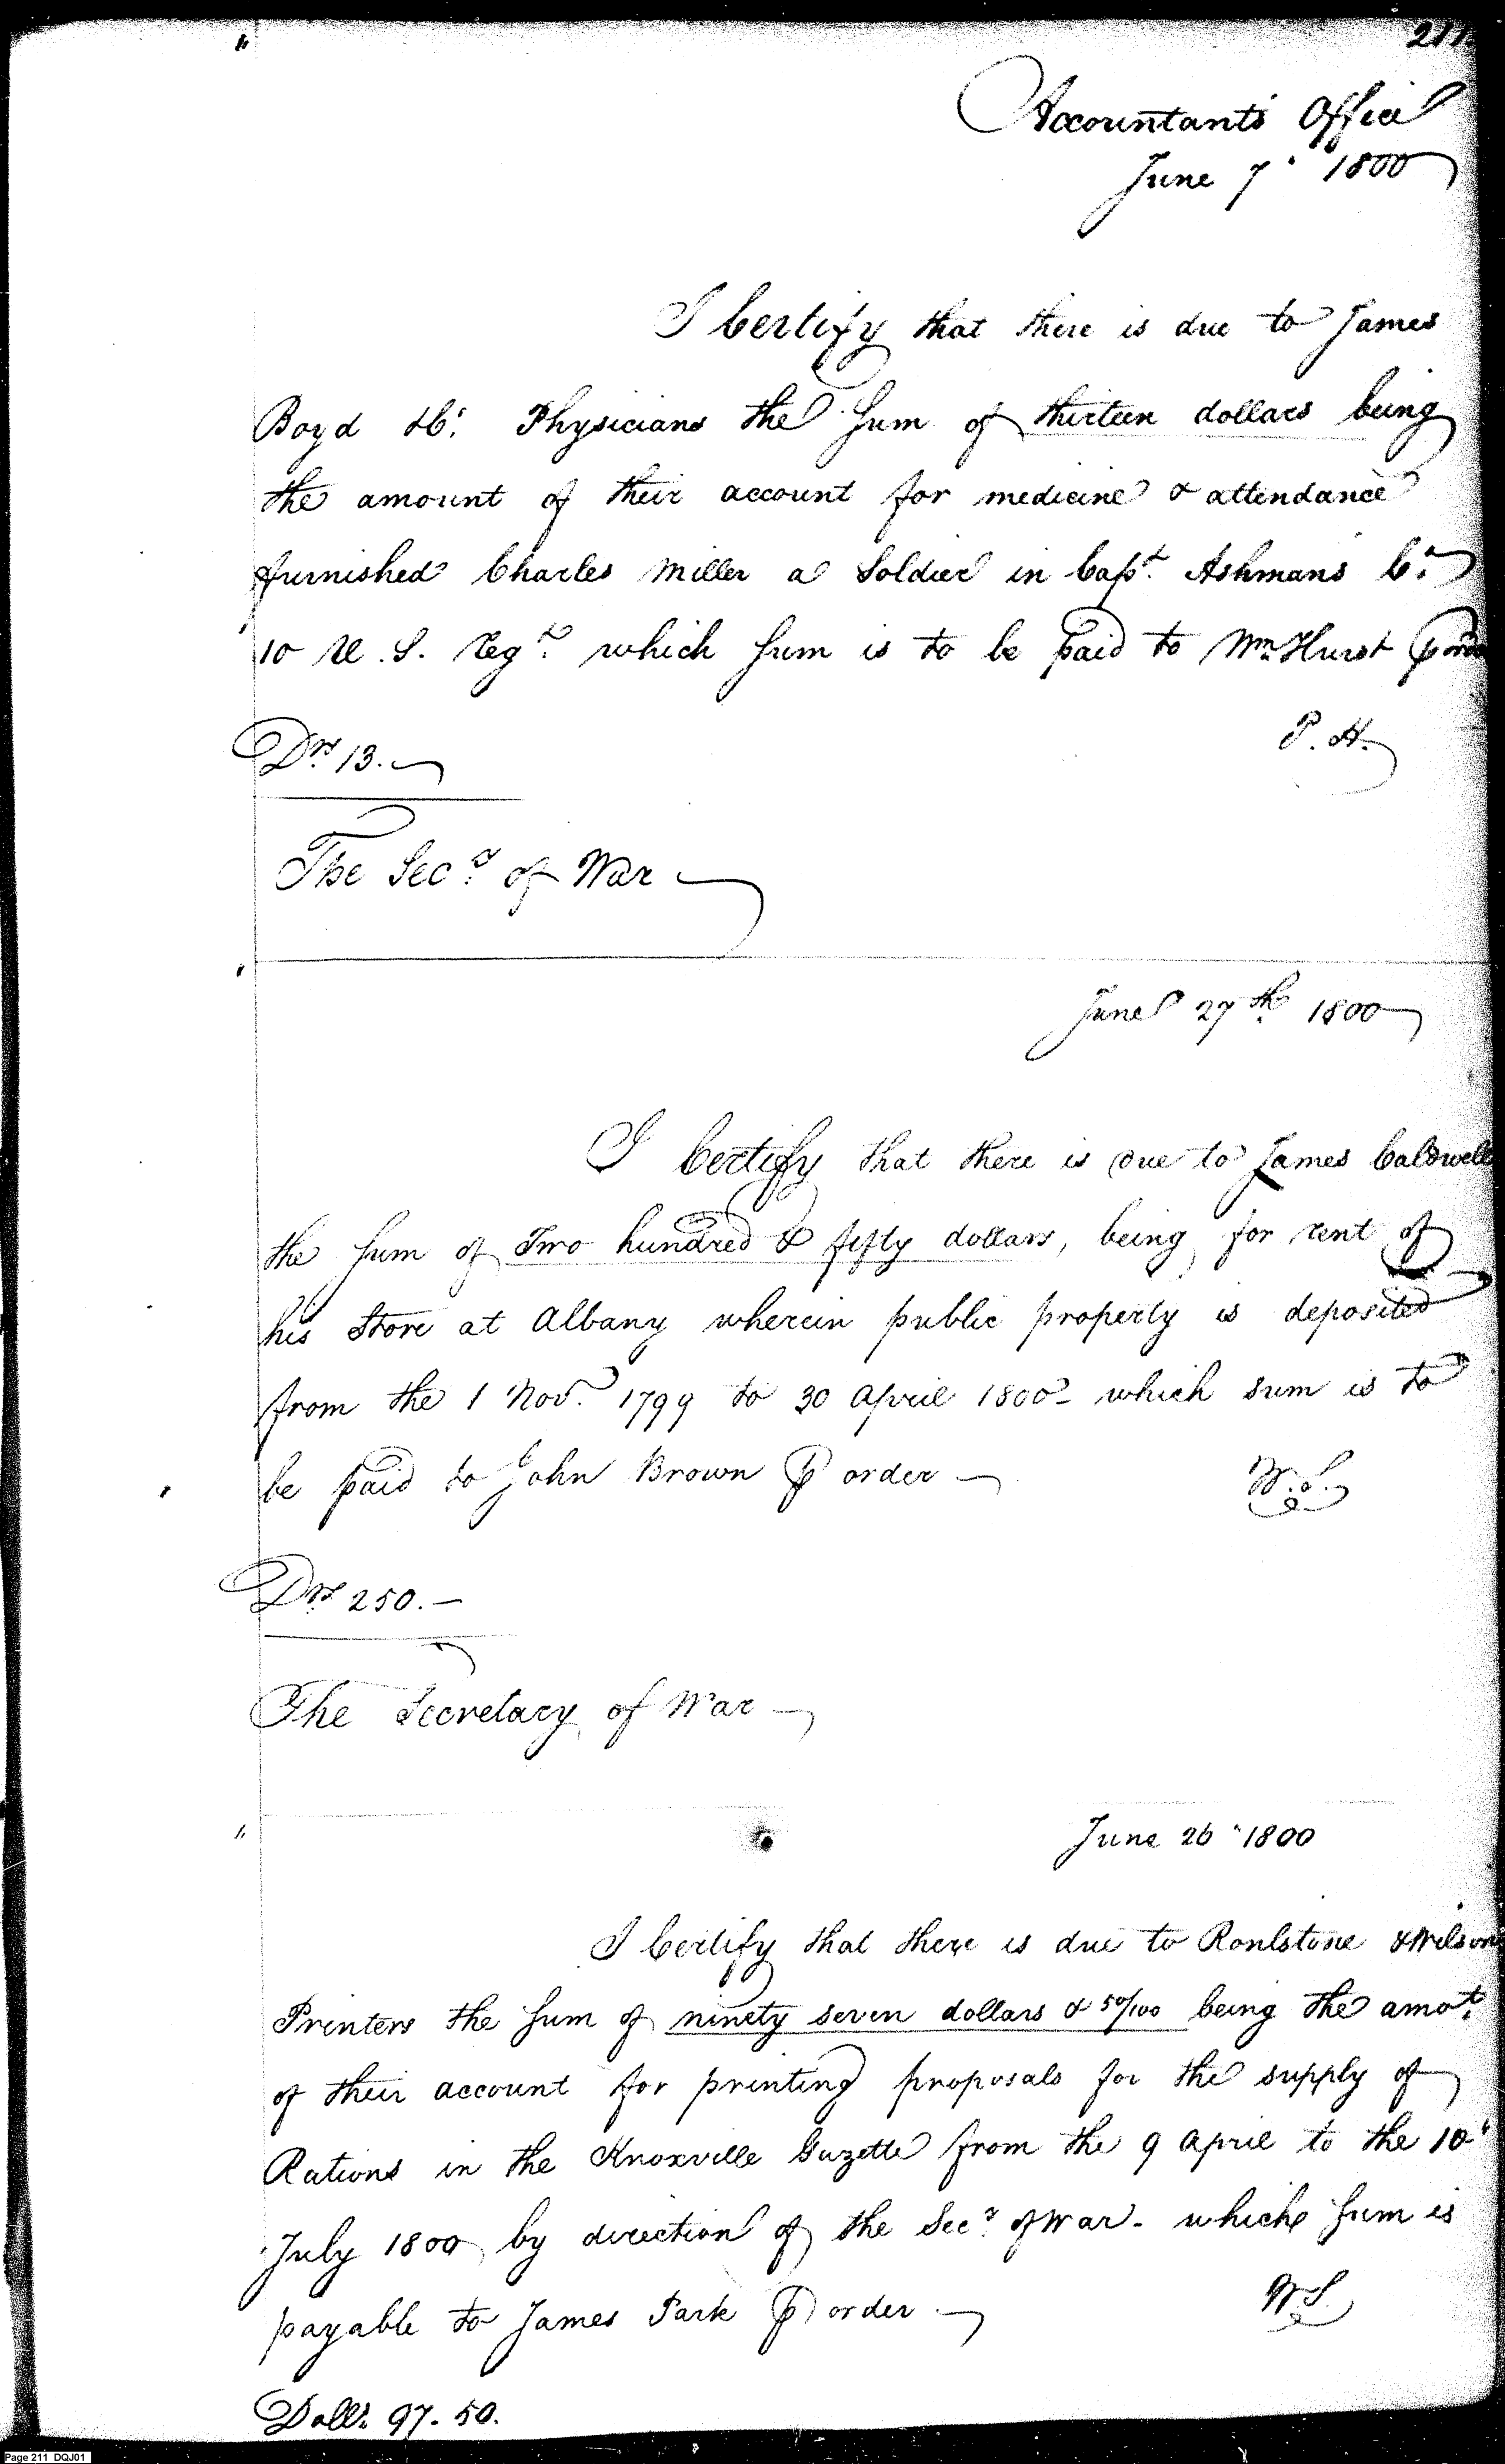 211
Accountants Office
June 7. 1800
I Certify that there is due to James
Boyd & Co. Physicians the Sum of thirteen dollars being
the amount of their account for medicine & attendance
furnished Charles Miller a Soldier in Capt. Ashmans Co.
10 U. S. Regt. which Sum is to be paid to Wm Hurst
P. H.
Drs 13.
The Secy. of War
June 27th 1800
I Certify that there is due to James Caldwell
the Sum of Two hundred & fifty dollars, being for rent of
his Store at Albany wherein public property is deposited
from the 1 Nov. 1799 to 30 April 1800 - which sum is to
be paid to John Brown ⅌ order
W. S.
Drs 250. -
The Secretary of War
June 26 1800
I Certify that there is due to Roulstone & Wilson
Printers the Sum of ninety seven dollars & 50/100 being the amot.
of their account for printing proposals for the supply of
Rations in the Knoxville Gazette from the 9 April to the 10
July 1800 by direction of the Secy. of War - which Sum is
payable to James Park ⅌ order
W S
Dolls. 97. 50.
Page 211 DQJ01